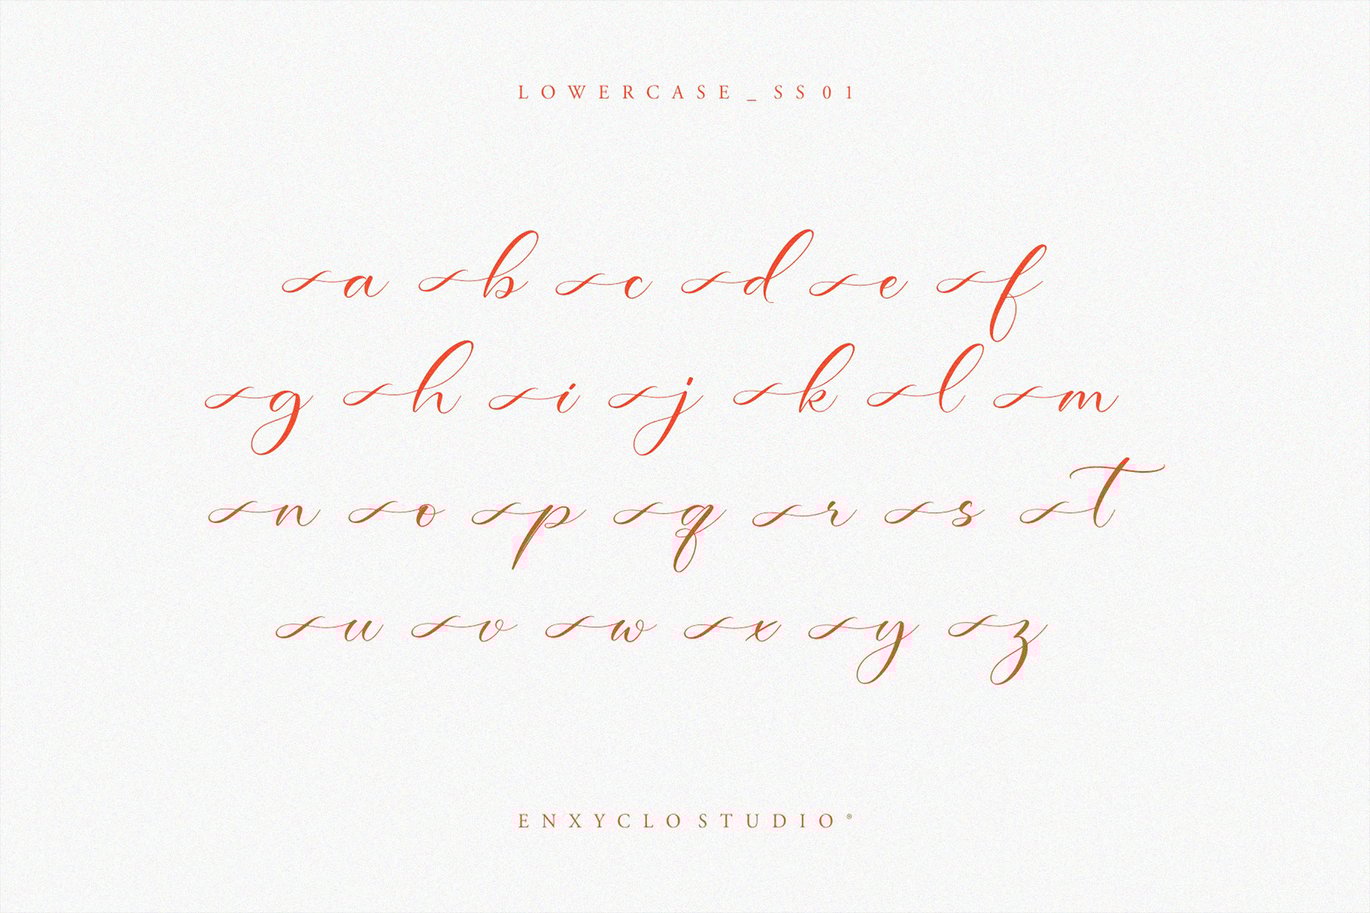 LOWERCASE_SS01
a b c d e f
g h i j k l m
n o p q r s t
u v w x y z
ENXYCLO STUDIO®